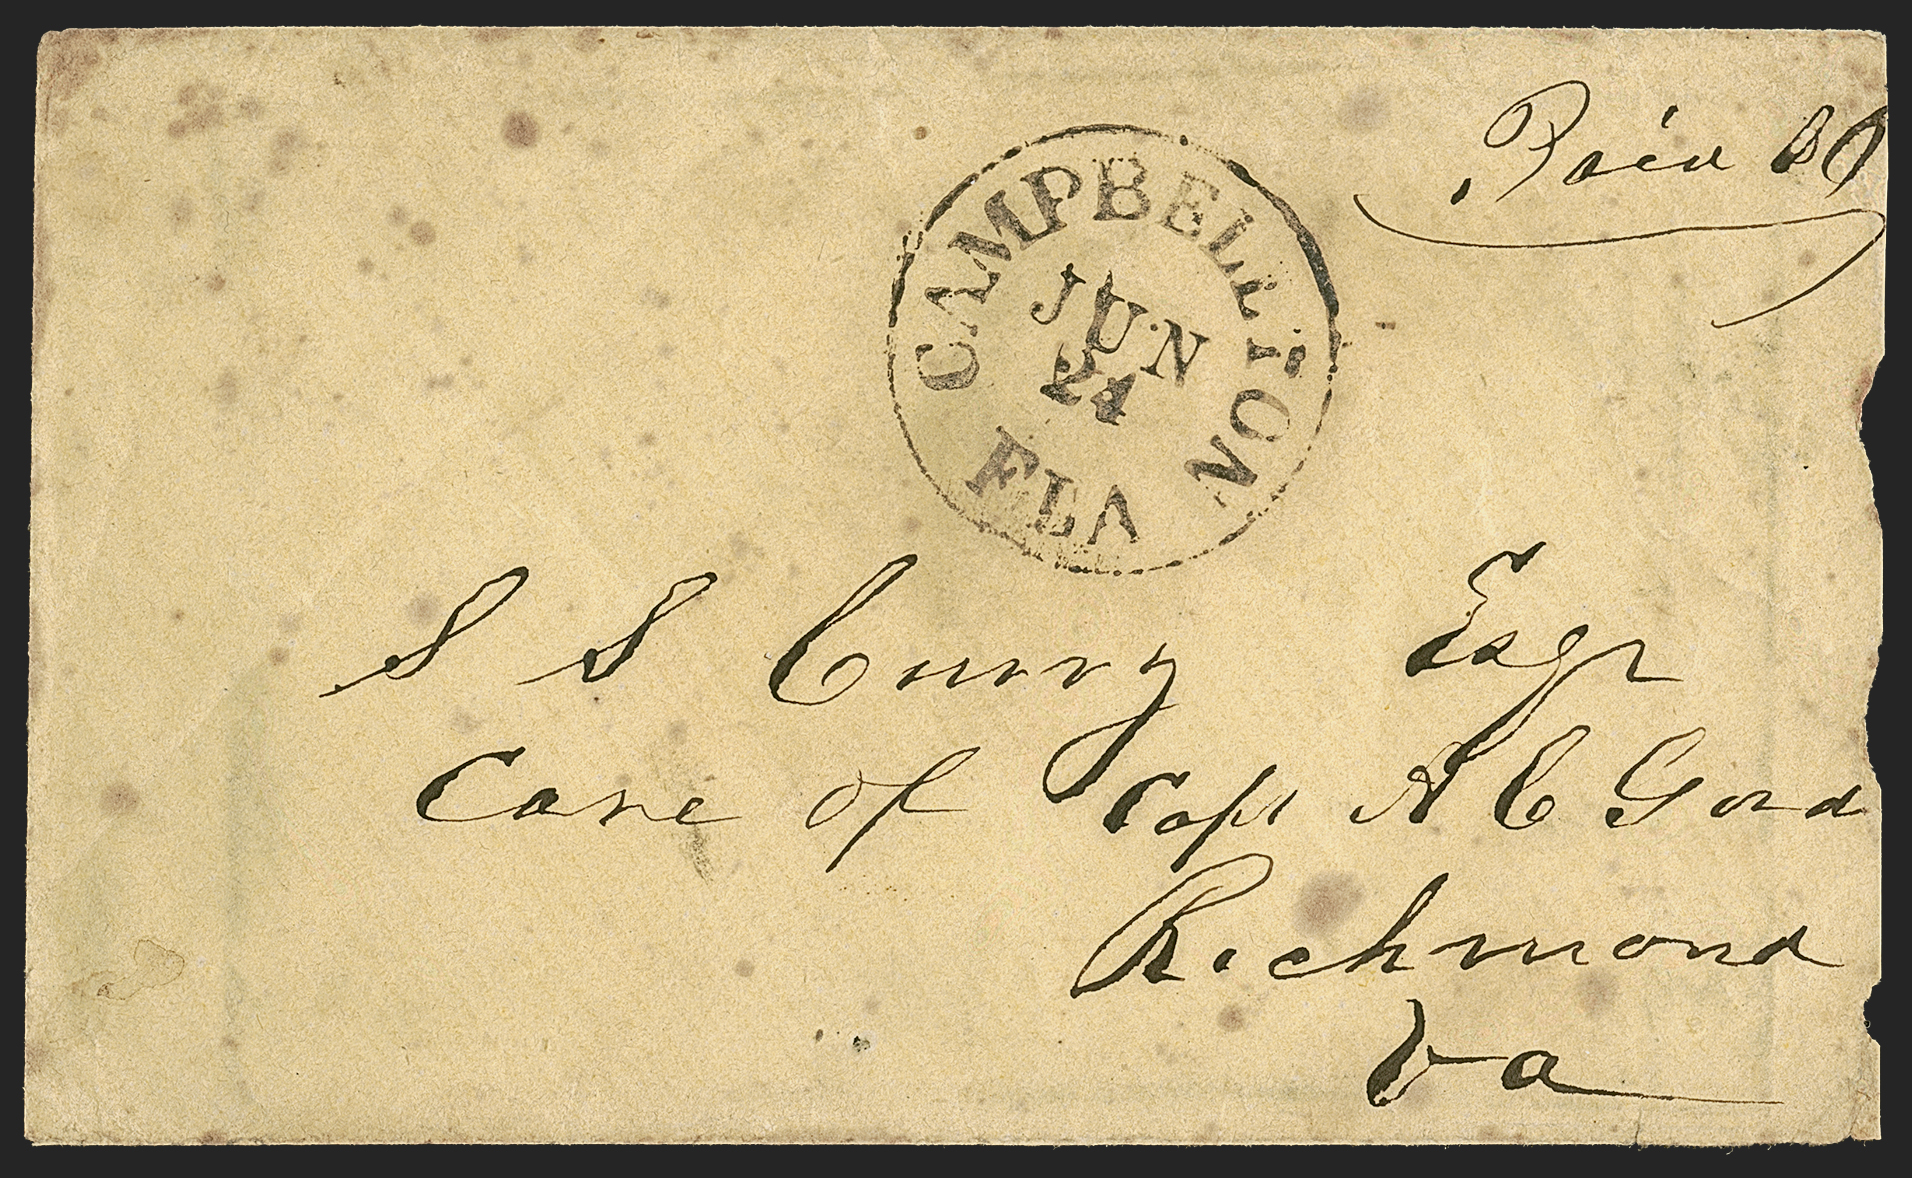 Paid 10
CAMPBELLTON
JUN
24
FLA
S S Curry Esqr
Care of Capt A C Gord
Richmond
Va